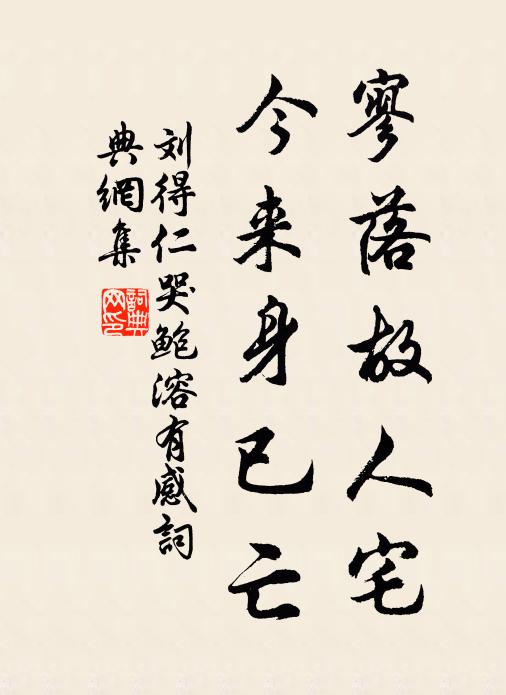 寥落故人宅
今来身已亡
刘得仁哭鲍溶有感詞
典網集
詞典
网印